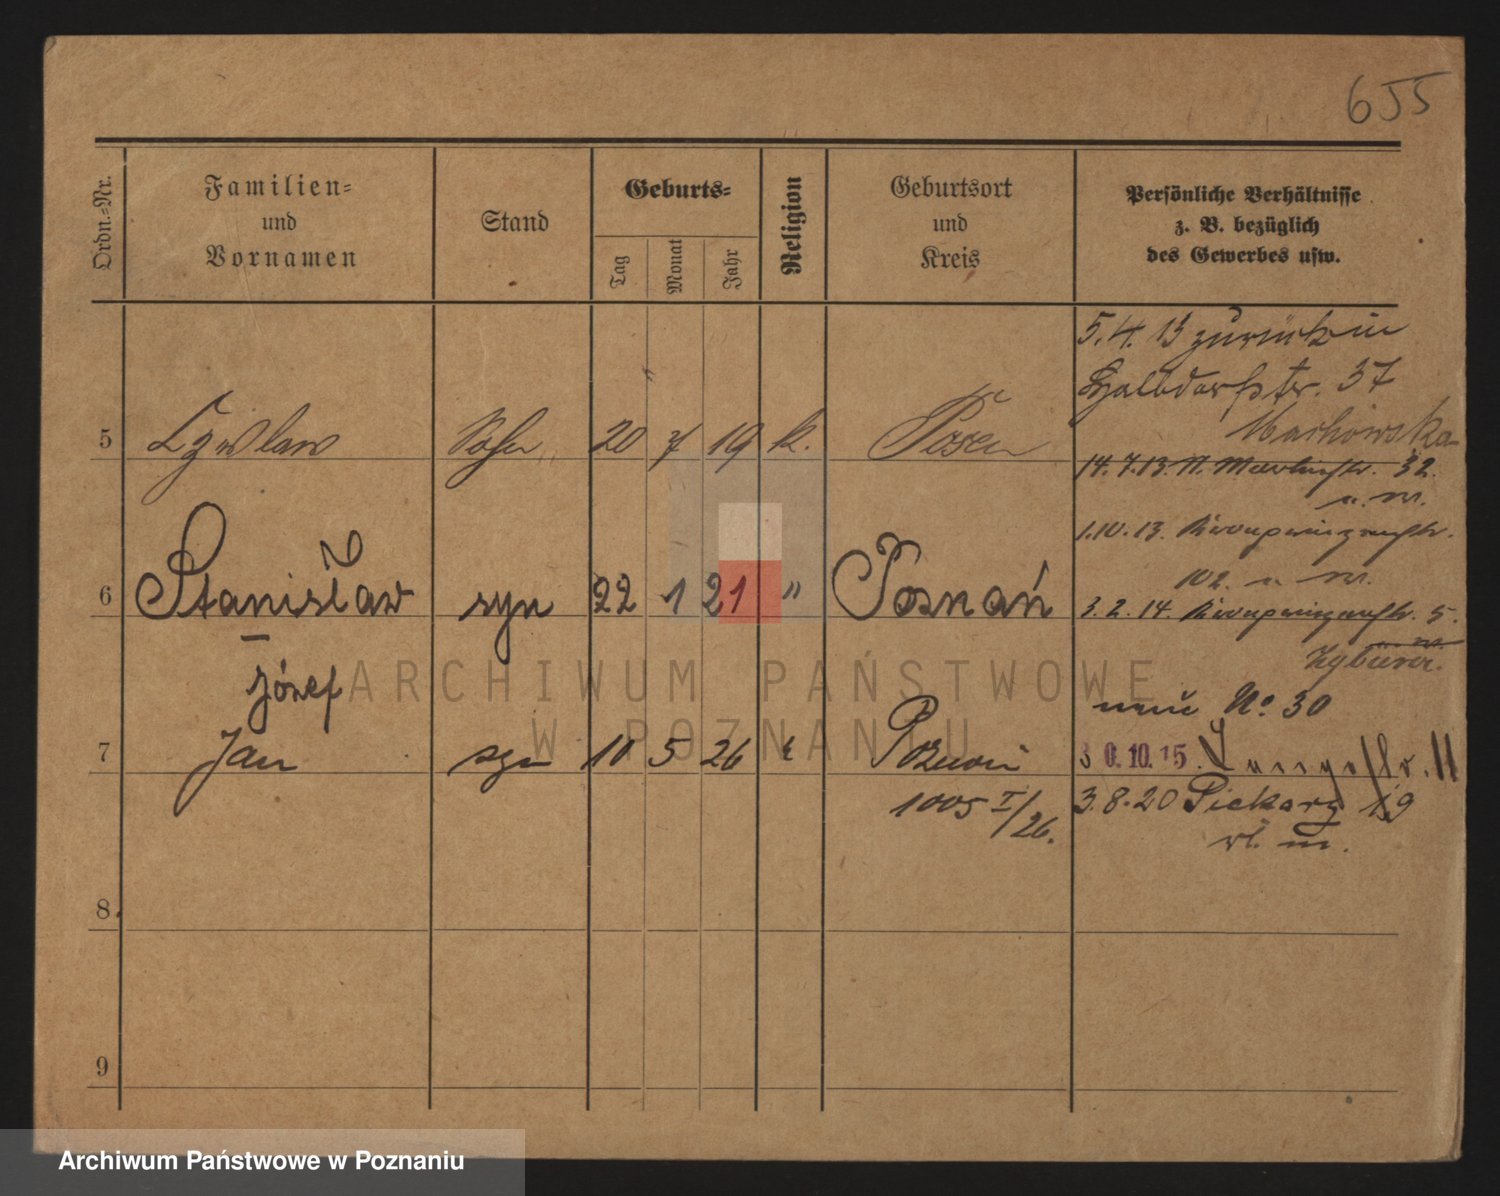 655
Ordn.-Nr.
Familien-
und
Vornamen
Stand
Geburts-
Tag
Monat
Jahr
Religion
Geburtsort
und
Kreis
Persönliche Verhältnisse
z. B. bezüglich
des Gewerbes usw.
5.4.13 zurück in
Halbdorfstr. 37
Machowska
5 Czeslaw Sohn 20 7 19 k. Posen
14.7.13. N. Martinstr. 32.
1.10.13. Kronprinzenstr.
102.
6 Stanisław syn 22 1 21 " Poznań
3.2.14. Kronprinzenstr. 5.
Józef
ARCHIWUM PAŃSTWOWE
W POZNANIU
neue No. 30
7 Jan syn 10 5 26 " Poznań
30.10.15. Langestr. 11
1005 I/26.
3.8.20 Piekary 19
8.
9
Archiwum Państwowe w Poznaniu